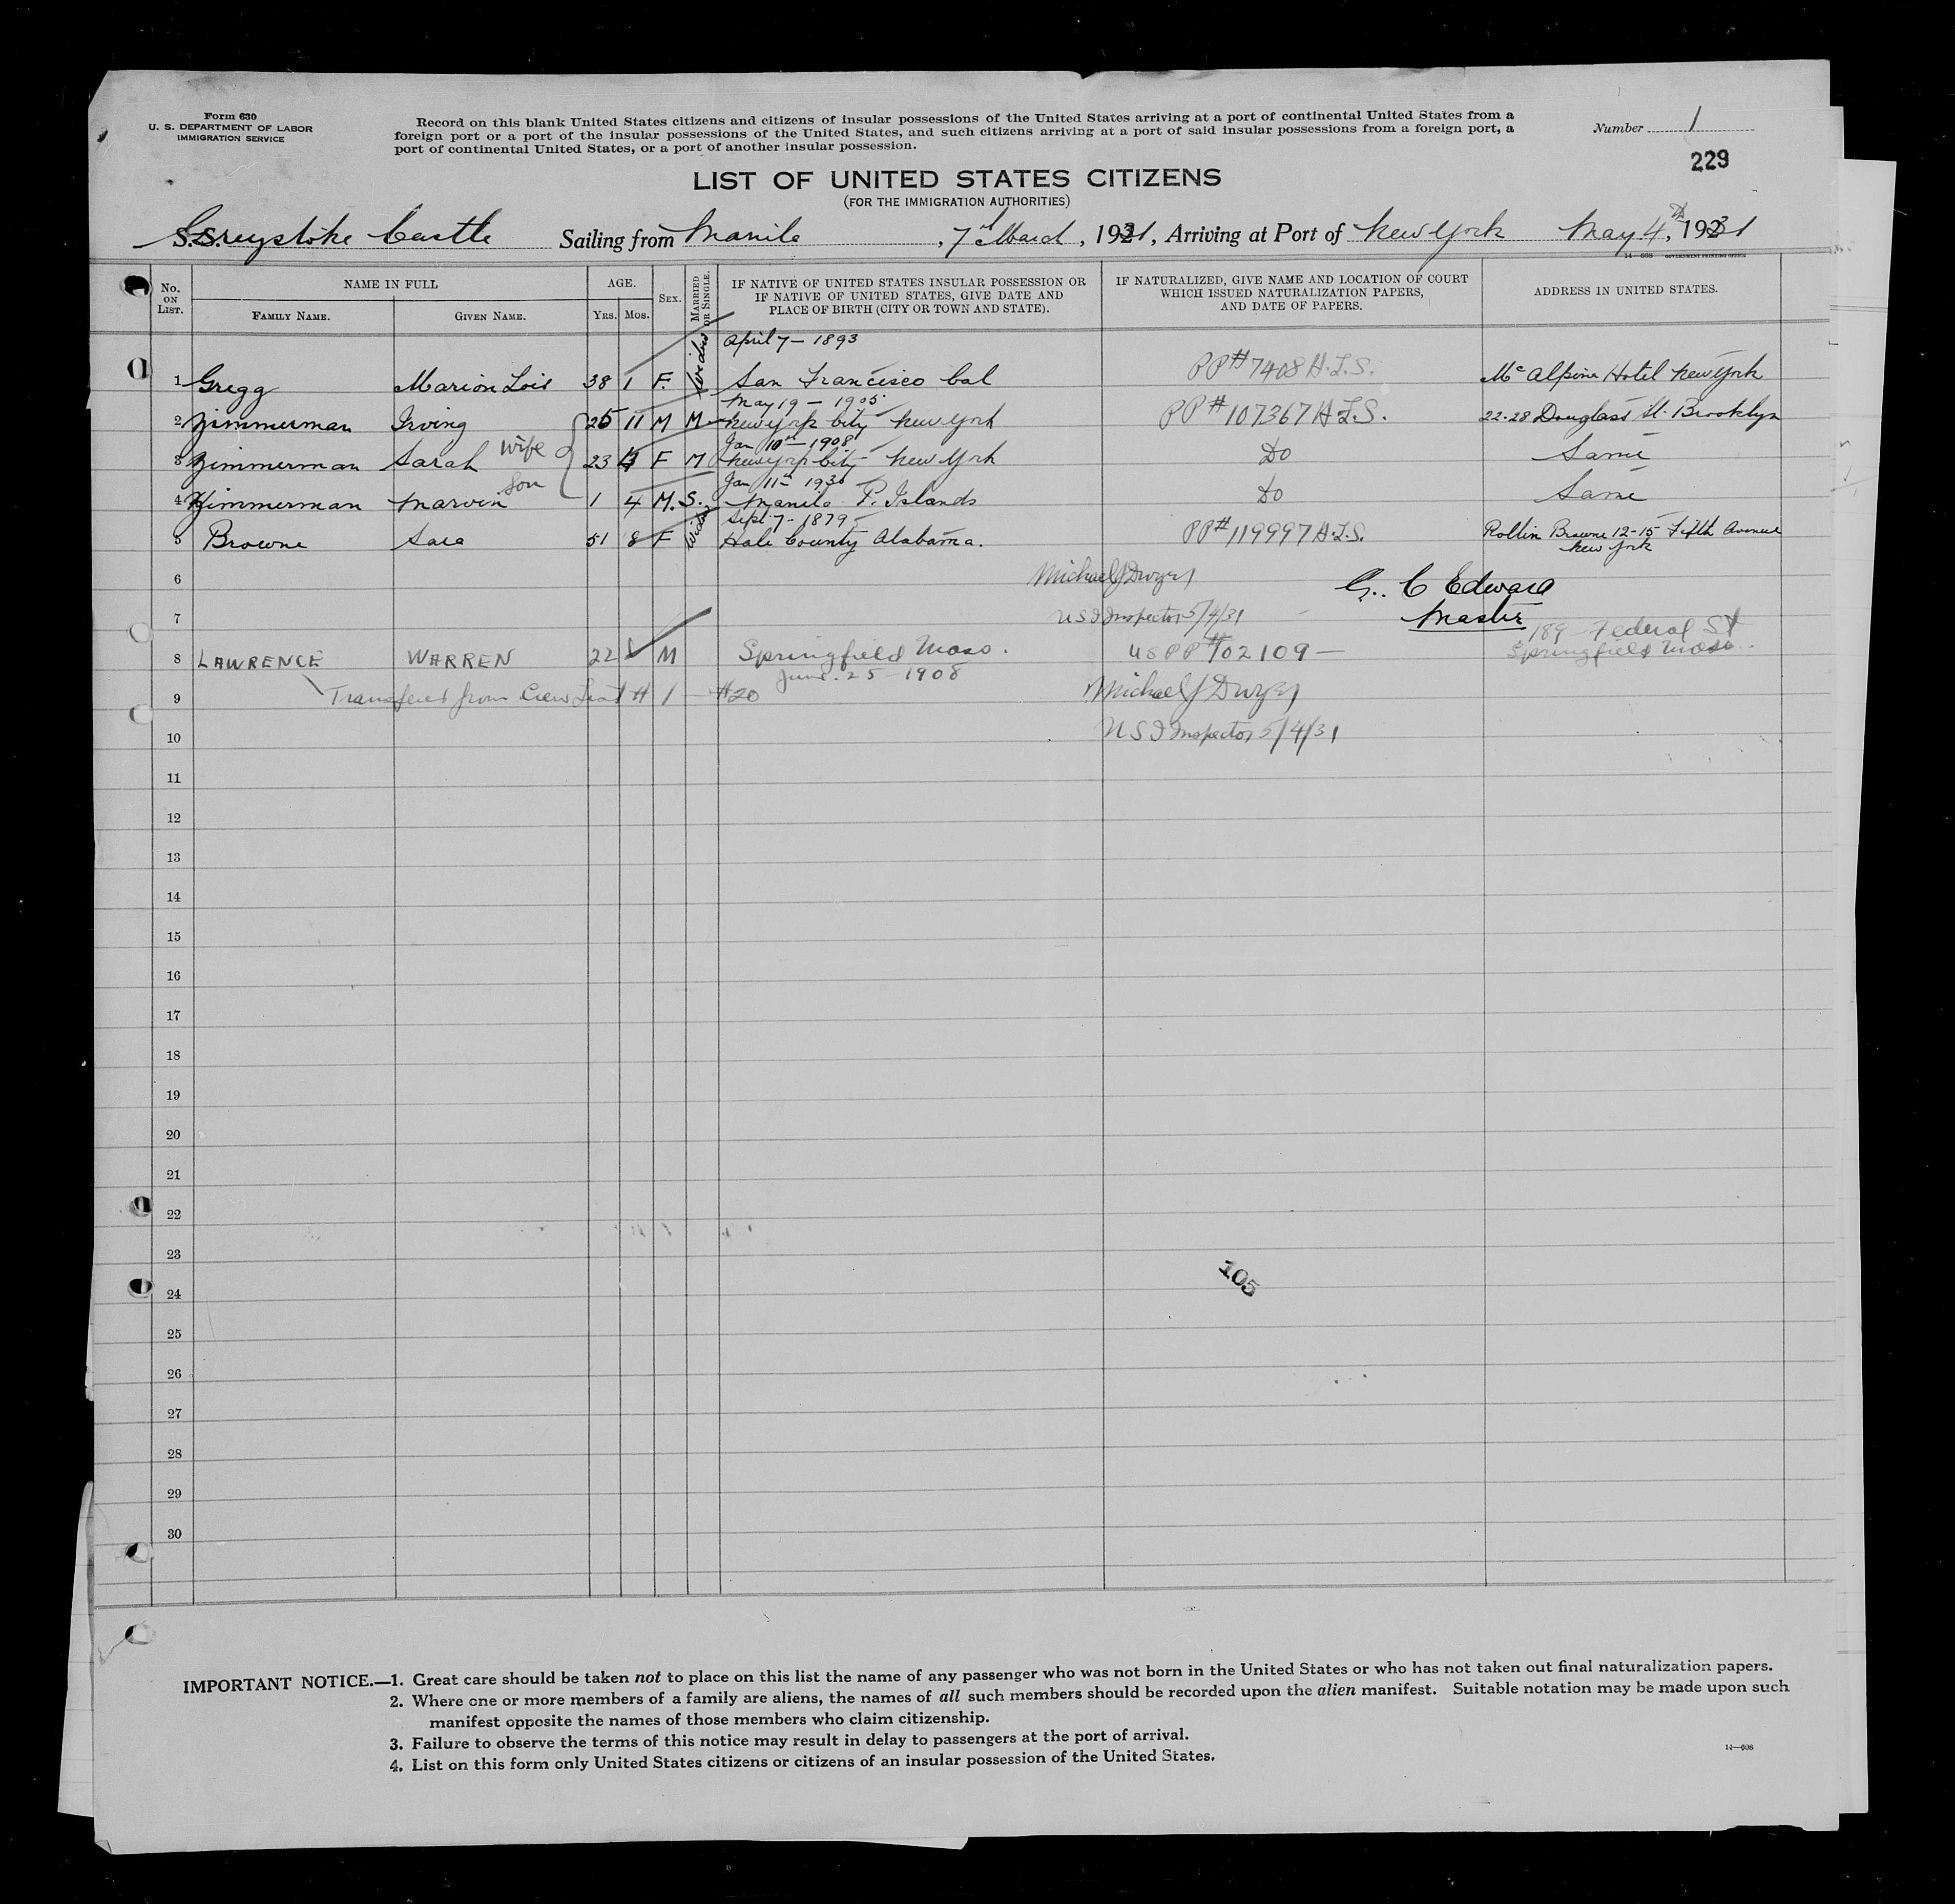 Form 630
U. S. DEPARTMENT OF LABOR
IMMIGRATION SERVICE
Record on this blank United States citizens and citizens of insular possessions of the United States arriving at a port of continental United States from a
foreign port or a port of the insular possessions of the United States, and such citizens arriving at a port of said insular possessions from a foreign port, a
port of continental United States, or a port of another insular possession.
Number 1
229
LIST OF UNITED STATES CITIZENS
(FOR THE IMMIGRATION AUTHORITIES)
S.S. Greystoke Castle Sailing from Manila, 7th March, 1931, Arriving at Port of New York May 4th, 1931
14—608 GOVERNMENT PRINTING OFFICE
No. ON LIST. NAME IN FULL AGE. SEX. MARRIED OR SINGLE. IF NATIVE OF UNITED STATES INSULAR POSSESSION OR IF NATIVE OF UNITED STATES, GIVE DATE AND PLACE OF BIRTH (CITY OR TOWN AND STATE). IF NATURALIZED, GIVE NAME AND LOCATION OF COURT WHICH ISSUED NATURALIZATION PAPERS, AND DATE OF PAPERS. ADDRESS IN UNITED STATES.
FAMILY NAME. GIVEN NAME. YRS. MOS.
April 7 - 1893
1 Gregg Marion Lois 38 1 F. Widow San Francisco Cal PP# 7408 H.I.S. Mc Alpine Hotel New York
May 19 - 1905
2 Zimmerman Irving 25 11 M M New York City New York PP# 107367 H.I.S. 22-28 Douglass St. Brooklyn
Jan 10th - 1908
3 Zimmerman Sarah wife 23 F M New York City New York Do Same
Jan 11th 1930
4 Zimmerman Marvin son 1 4 M. S. Manila P. Islands Do Same
Sept. 7 - 1879
5 Browne Sara 51 8 F Widow Hale County Alabama. PP# 119997 H.I.S. Rollin Browne 12-15 Fifth Avenue
New York
6 Michael J Dwyer G. C Edward
7 US I Inspector 5/4/31 Master
189 Federal St
8 LAWRENCE WARREN 22 M Springfield Mass. US PP# 102109 — Springfield Mass.
June 25 - 1908
9 Transferred from Crew List # 1 - #20 Michael J Dwyer
10 U S I Inspector 5/4/31
11
12
13
14
15
16
17
18
19
20
21
22
23
105
24
25
26
27
28
29
30
IMPORTANT NOTICE.—1. Great care should be taken not to place on this list the name of any passenger who was not born in the United States or who has not taken out final naturalization papers.
2. Where one or more members of a family are aliens, the names of all such members should be recorded upon the alien manifest. Suitable notation may be made upon such
manifest opposite the names of those members who claim citizenship.
3. Failure to observe the terms of this notice may result in delay to passengers at the port of arrival.
4. List on this form only United States citizens or citizens of an insular possession of the United States.
14—608